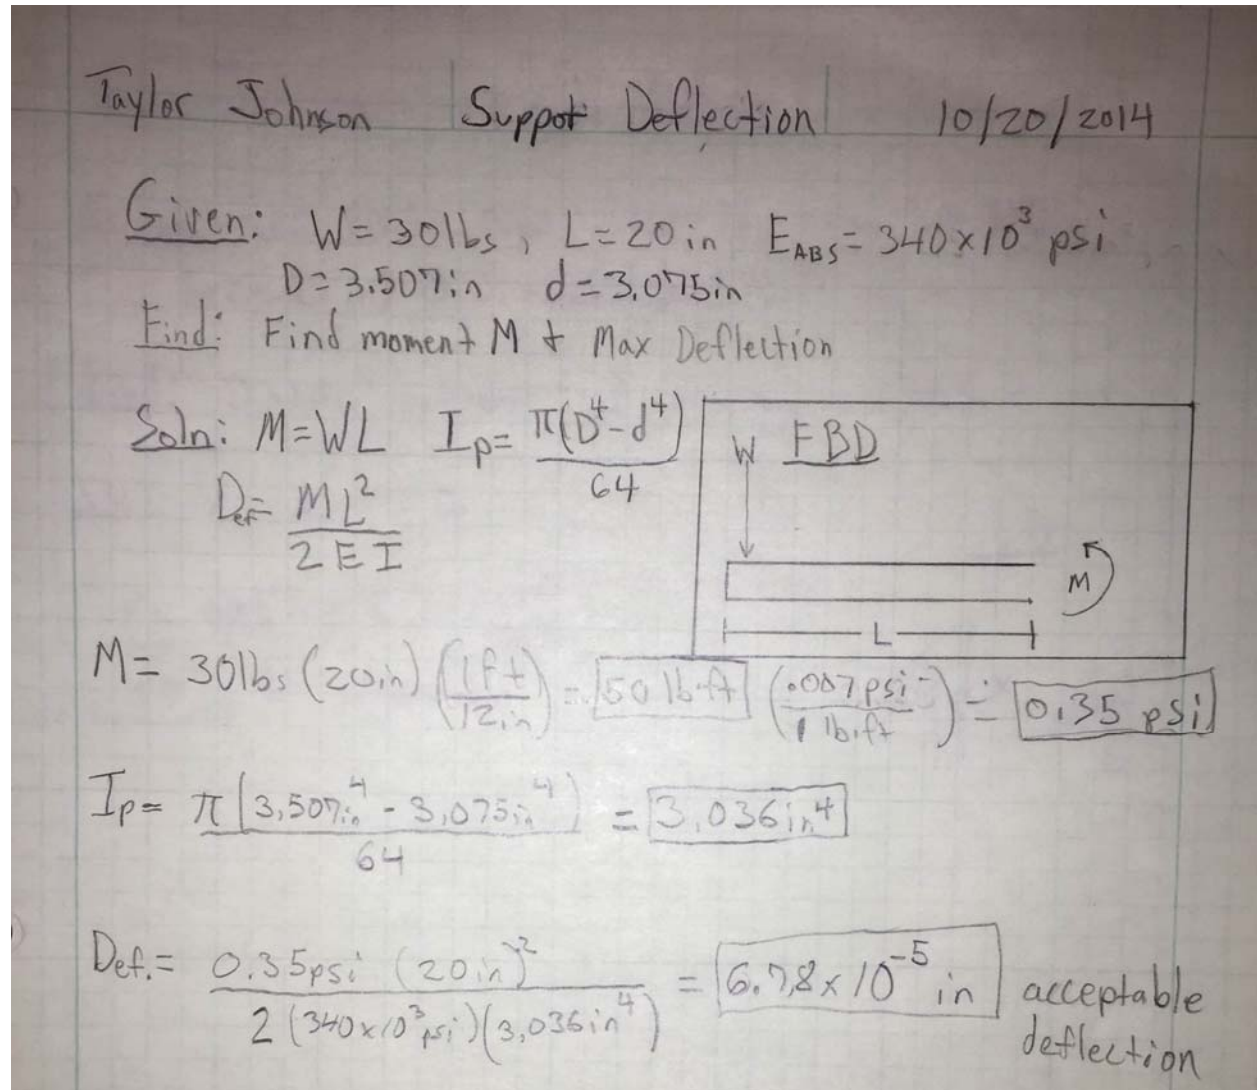 Taylor Johnson Suppot Deflection 10/20/2014
Given: W=30lbs, L=20in E_ABS=340×10³ psi
D=3.507in d=3.075in
Find: Find moment M + Max Deflection
Soln: M=WL I_p= π(D⁴-d⁴)/64
D_ef= ML²/2EI
W FBD
M
L
M= 30lbs (20in) (1ft/12in) = 50 lb·ft (.007psi/1 lb·ft) = 0.35 psi
I_p= π(3.507in⁴ - 3.075in⁴)/64 = 3.036in⁴
Def.= 0.35psi (20in)²/2(340×10³psi)(3.036in⁴) = 6.78×10⁻⁵ in acceptable
deflection